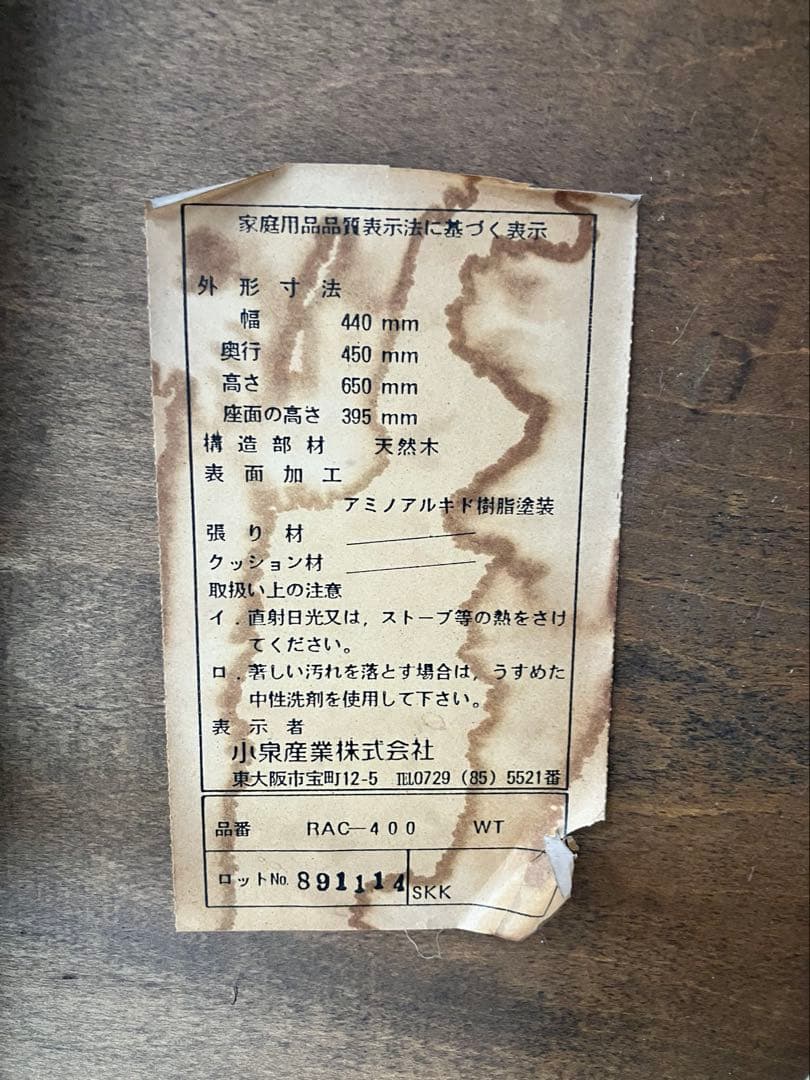 家庭用品品質表示法に基づく表示
外形寸法
幅 440 mm
奥行 450 mm
高さ 650 mm
座面の高さ 395 mm
構造部材 天然木
表面加工
アミノアルキド樹脂塗装
張り材
クッション材
取扱い上の注意
イ．直射日光又は，ストーブ等の熱をさけ
てください。
ロ．著しい汚れを落とす場合は，うすめた
中性洗剤を使用して下さい。
表示者
小泉産業株式会社
東大阪市宝町12-5 TEL0729（85）5521番
品番 RAC-400 WT
ロットNo. 891114 SKK